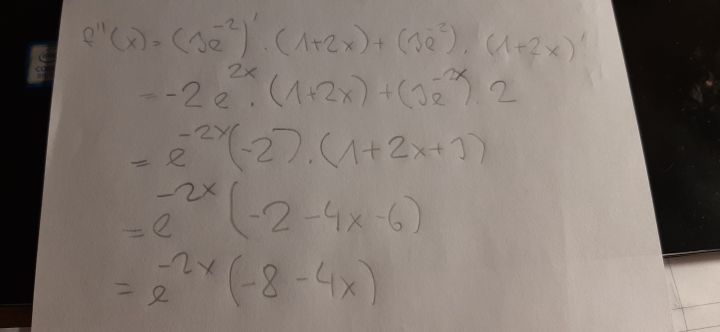 f''(x) = (3e⁻²)' · (1+2x) + (3e⁻²) · (1+2x)'
= -2e²ˣ · (1+2x) + (3e⁻²ˣ) 2
= e⁻²ˣ (-2) · (1+2x+3)
= e⁻²ˣ (-2 -4x -6)
= e⁻²ˣ (-8 -4x)